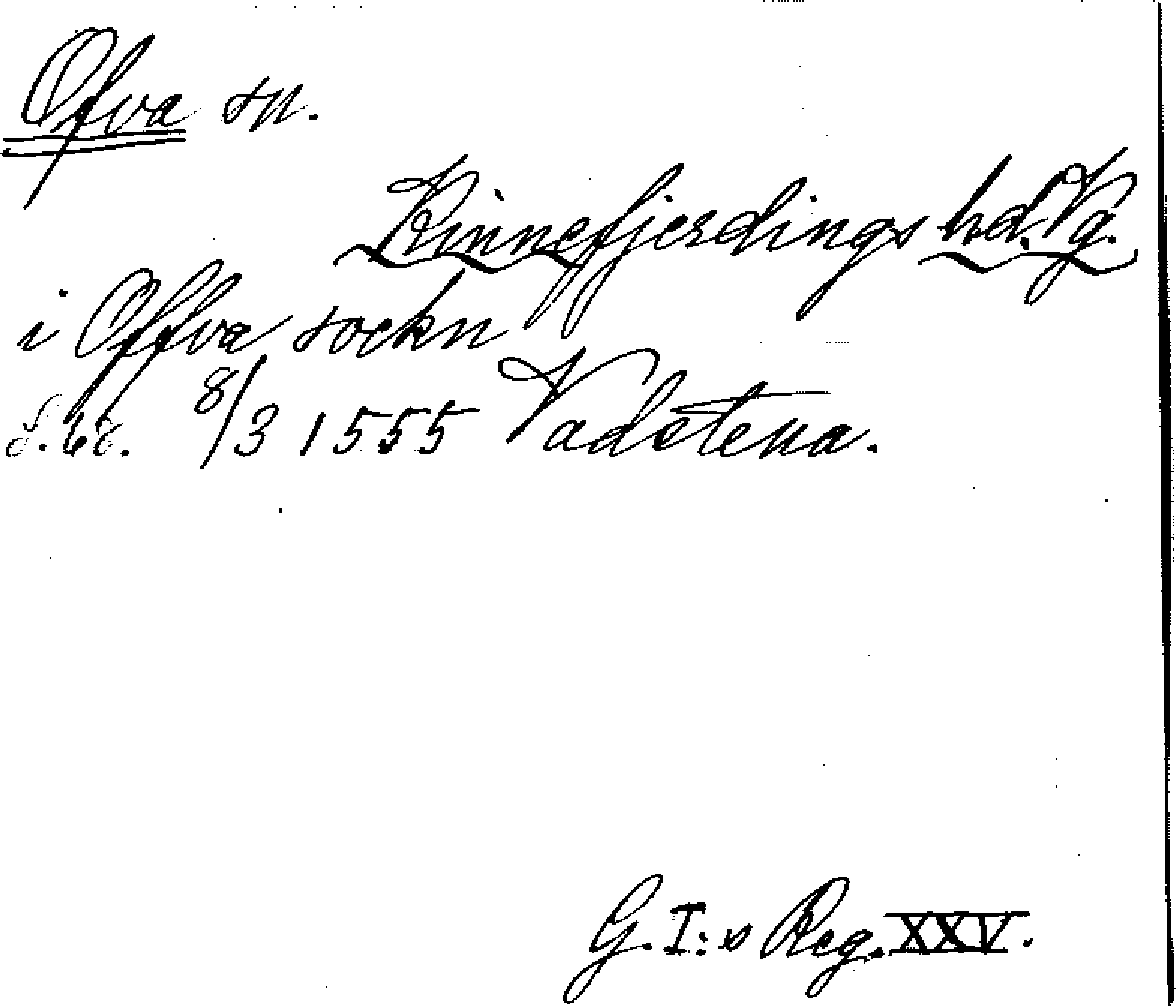 Ofva sn.
Kinnefjerdings hd. Vg.
i Offva sockn
S. 68. 8/3 1555 Vadstena.
G. I:s Reg. XXV.